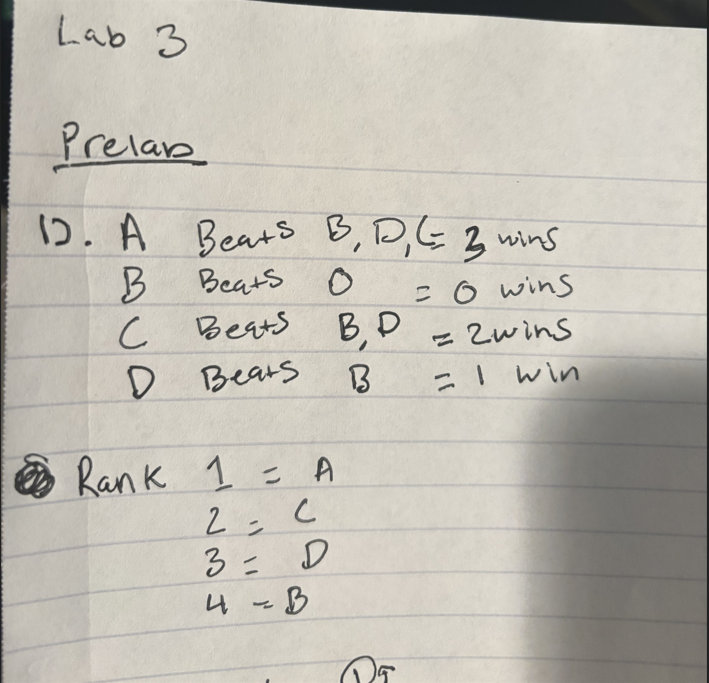 Lab 3
Prelab
1). A Beats B, D, C = 3 wins
B Beats 0 = 0 wins
C Beats B, D = 2 wins
D Beats B = 1 win
Rank 1 = A
2 = C
3 = D
4 = B